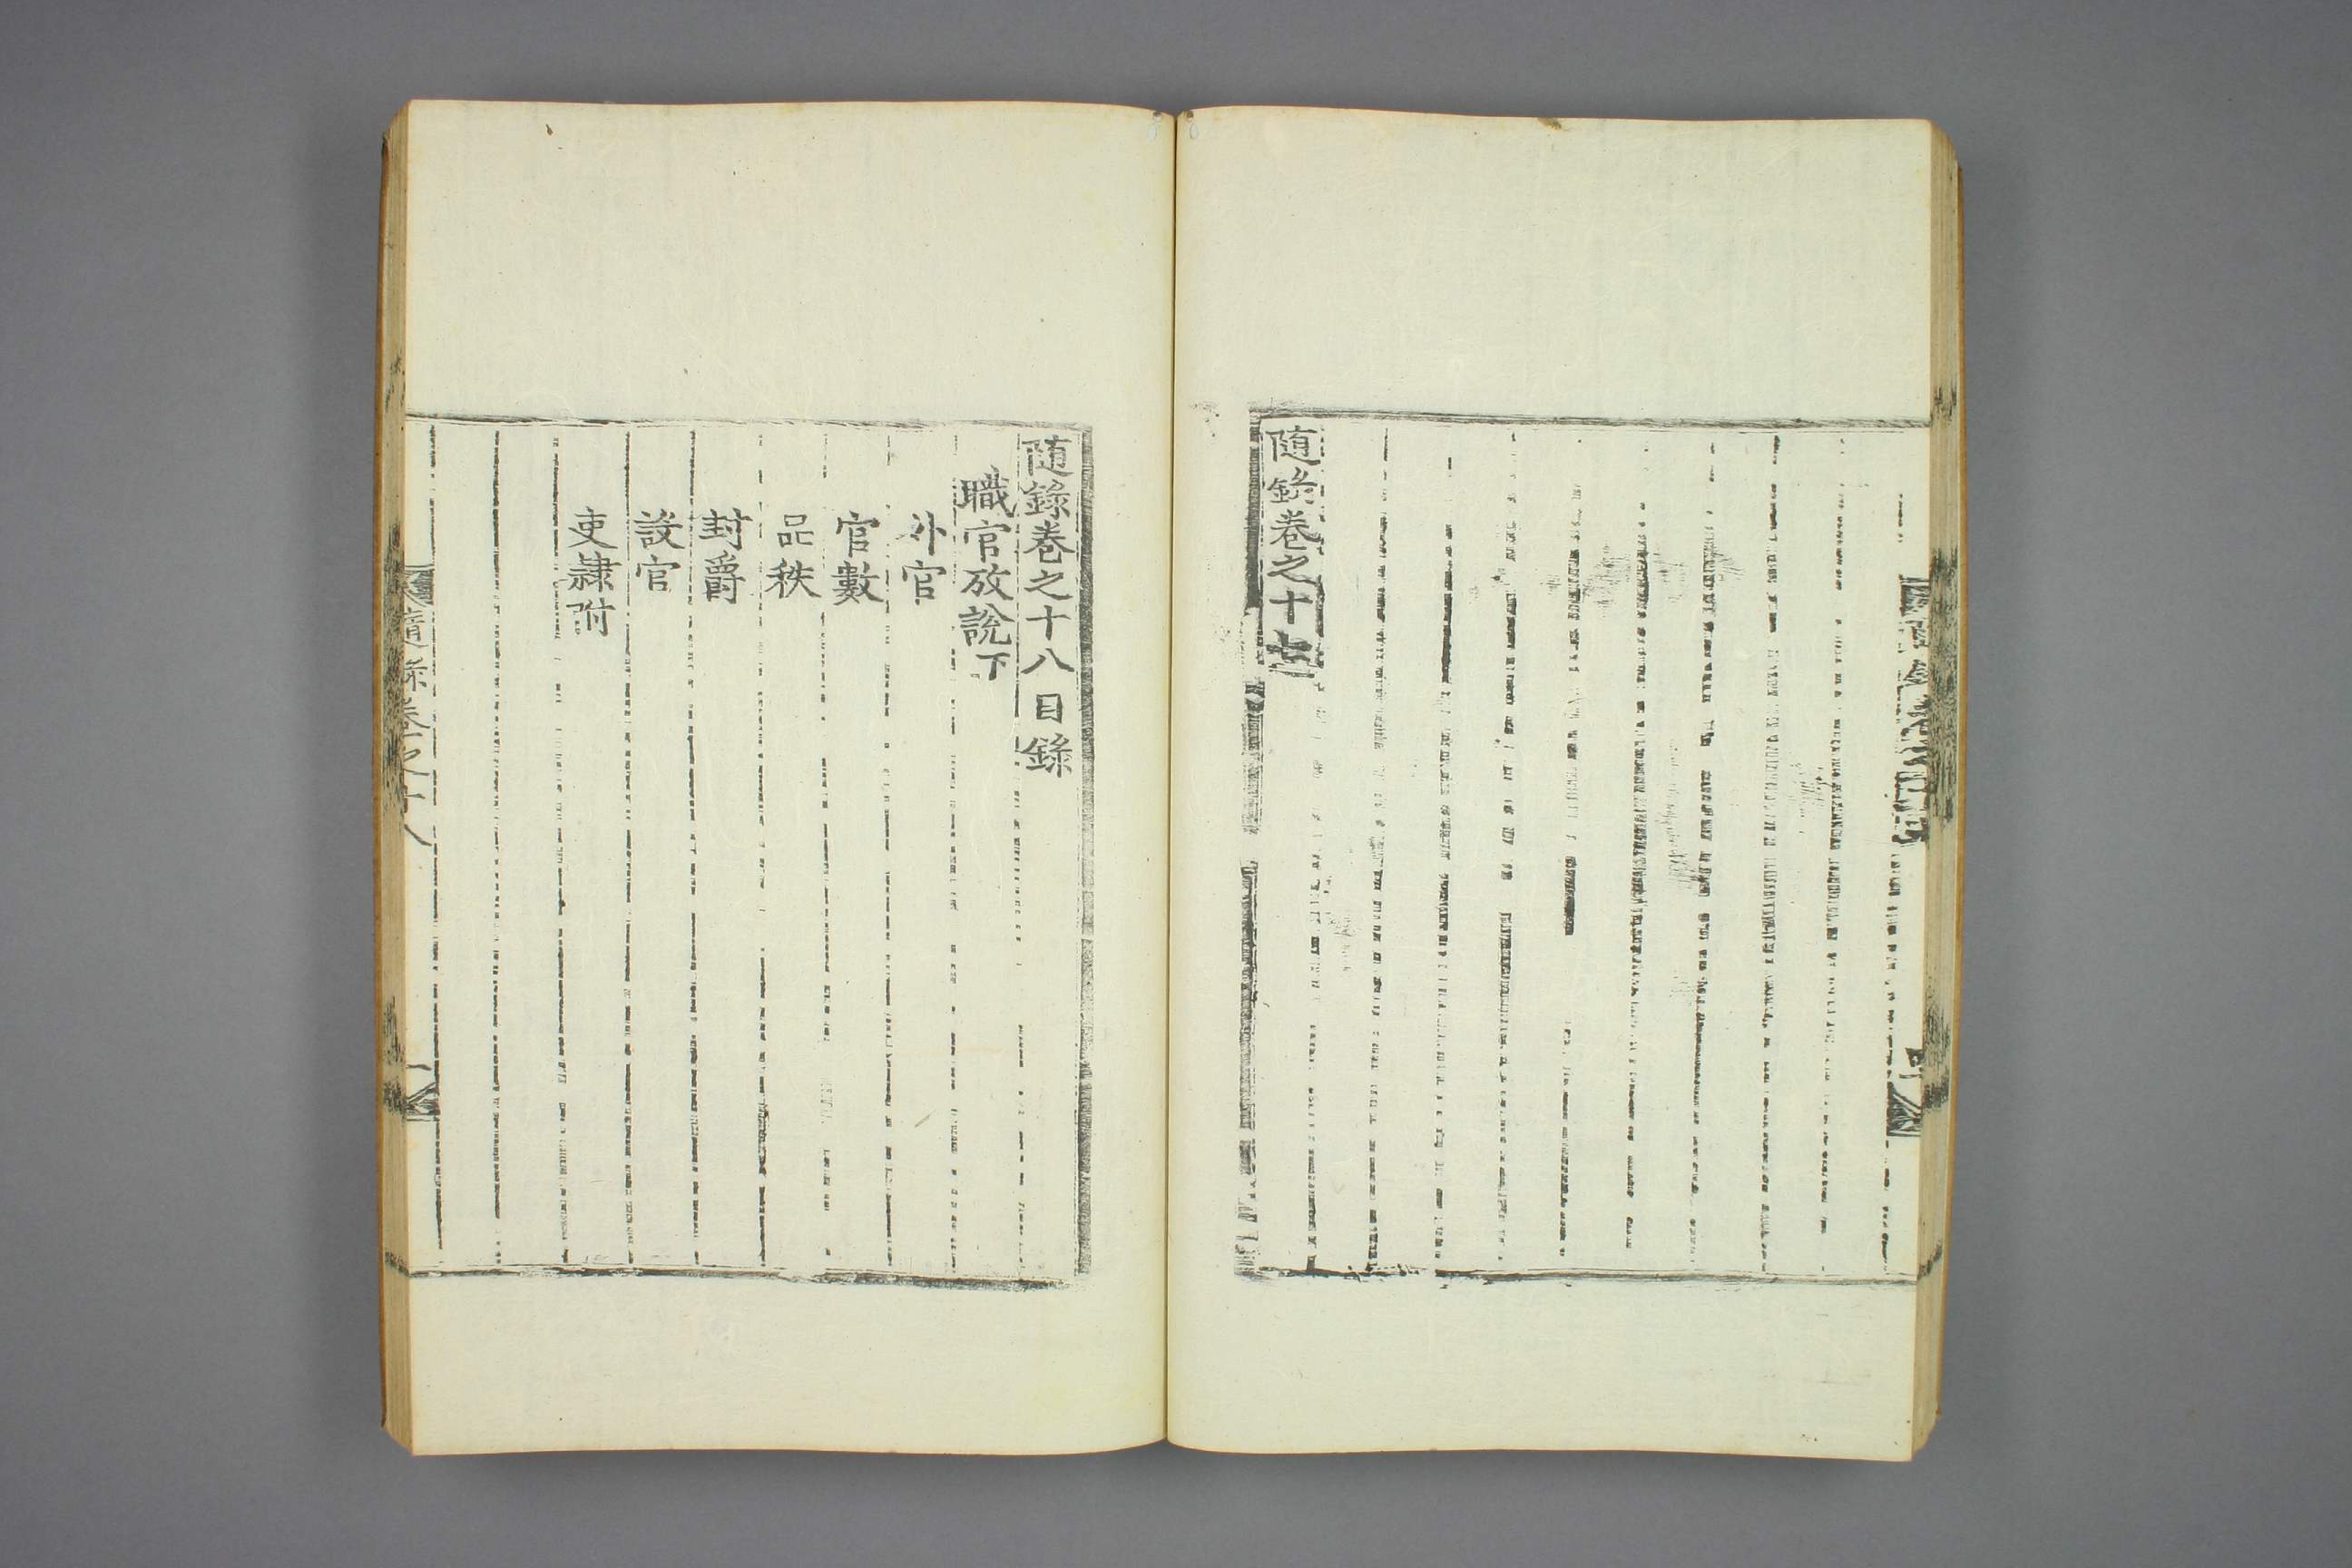 随錄卷之十七
随錄卷之十八目錄
職官攷說下
外官
官數
品秩
封爵
設官
吏隷附
隨錄卷之十八